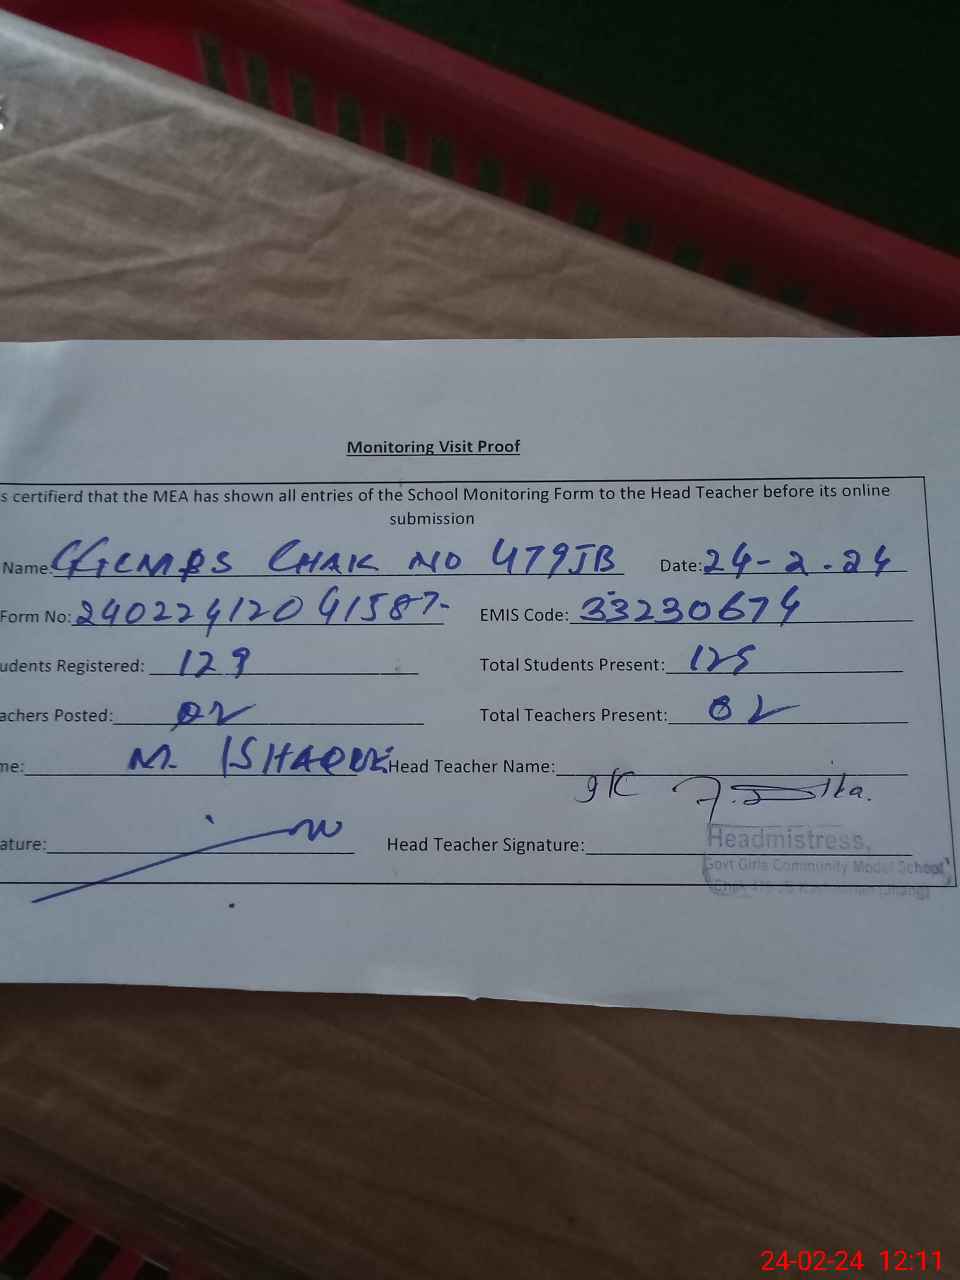 Monitoring Visit Proof
s certifierd that the MEA has shown all entries of the School Monitoring Form to the Head Teacher before its online
submission
Name: GGCMPS CHAK NO 479JB Date: 24-2-24
Form No: 24022412041587 EMIS Code: 33230674
udents Registered: 129 Total Students Present: 125
achers Posted: 02 Total Teachers Present: 02
me: M. ISHAQUE Head Teacher Name:
ature: Head Teacher Signature:
Headmistress,
Govt Girls Community Model School
24-02-24 12:11